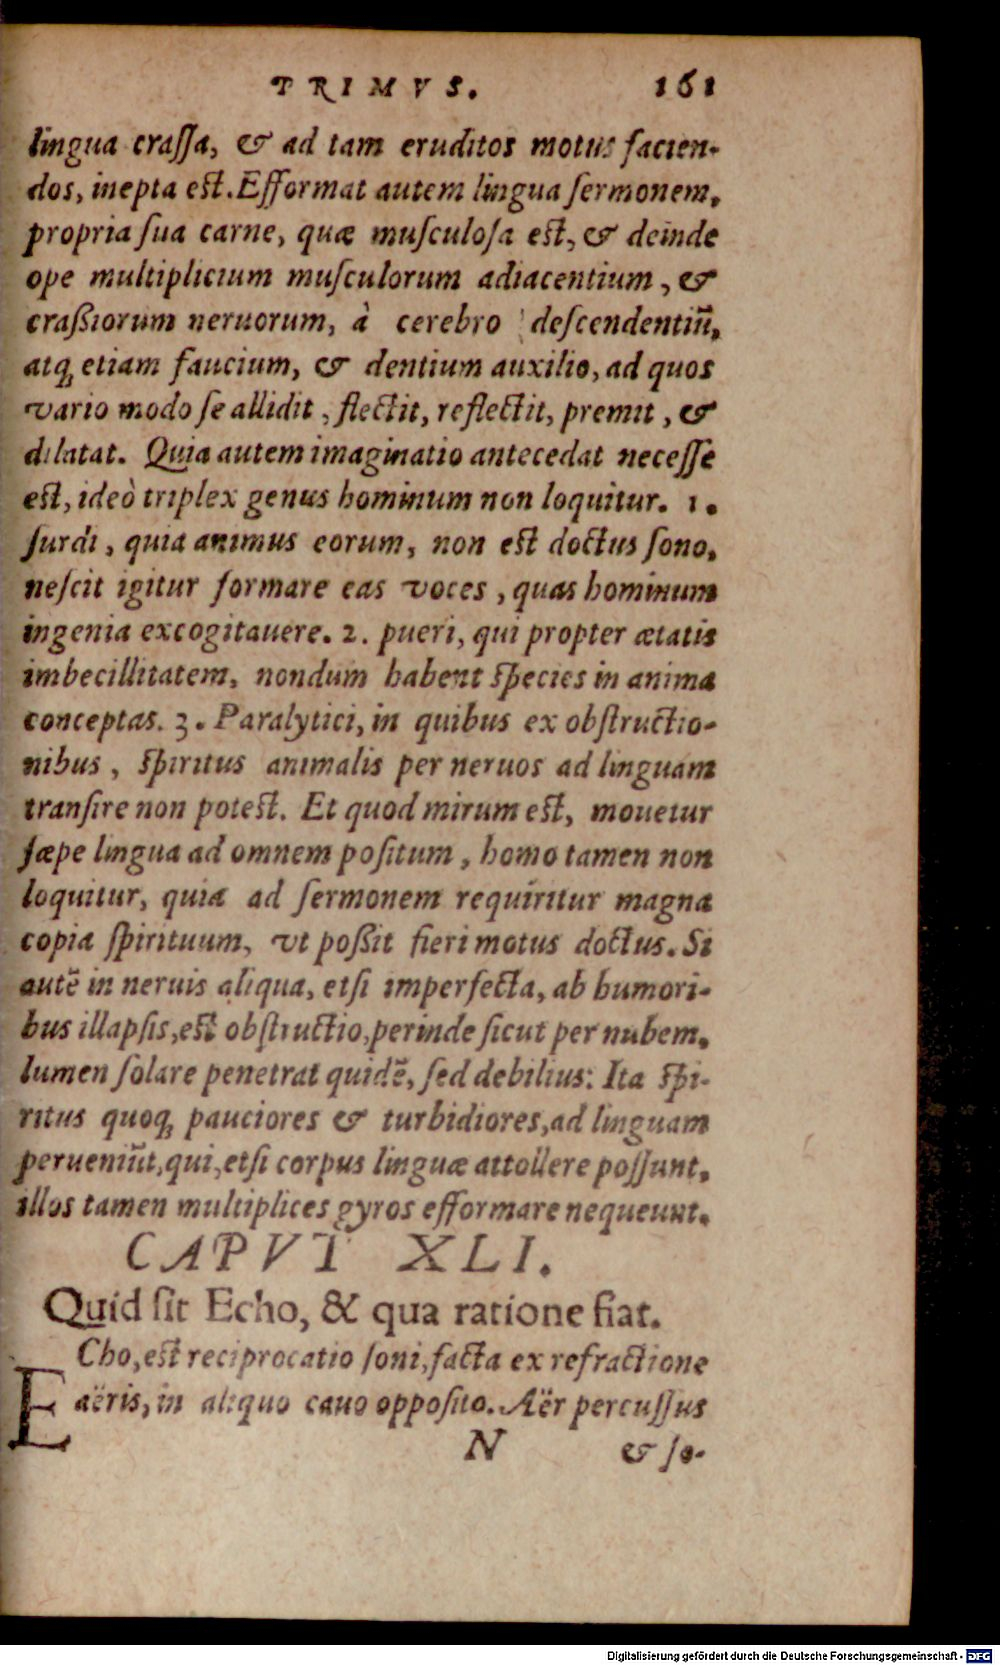 TRIMVS. 161
lingua craſſa, & ad tam eruditos motus facien-
dos, inepta eſt. Efformat autem lingua ſermonem,
propria ſua carne, quæ muſculoſa eſt, & deinde
ope multiplicium muſculorum adiacentium, &
craßiorum neruorum, à cerebro deſcendentiũ,
atq; etiam faucium, & dentium auxilio, ad quos
vario modo ſe allidit, flectit, reflectit, premit, &
dilatat. Quia autem imaginatio antecedat neceſſe
eſt, ideò triplex genus hominum non loquitur. 1.
ſurdi, quia animus eorum, non eſt doctus ſono,
neſcit igitur formare eas voces, quas hominum
ingenia excogitauere. 2. pueri, qui propter ætatis
imbecillitatem, nondum habent ſpecies in anima
conceptas. 3. Paralytici, in quibus ex obſtructio-
nibus, ſpiritus animalis per neruos ad linguam
tranſire non poteſt. Et quod mirum eſt, mouetur
ſæpe lingua ad omnem poſitum, homo tamen non
loquitur, quia ad ſermonem requiritur magna
copia ſpirituum, vt poßit fieri motus doctus. Si
autẽ in neruis aliqua, etſi imperfecta, ab humori-
bus illapſis, eſt obſtructio, perinde ſicut per nubem,
lumen ſolare penetrat quidẽ, ſed debilius: Ita ſpi-
ritus quoq; pauciores & turbidiores, ad linguam
perueniũt, qui, etſi corpus linguæ attollere poſſunt,
illos tamen multiplices gyros efformare nequeunt.
CAPVT XLI.
Quid ſit Echo, & qua ratione fiat.
ECho, eſt reciprocatio ſoni, facta ex refractione
aëris, in aliquo cauo oppoſito. Aër percuſſus
N & ſo-
Digitalisierung gefördert durch die Deutsche Forschungsgemeinschaft - DFG